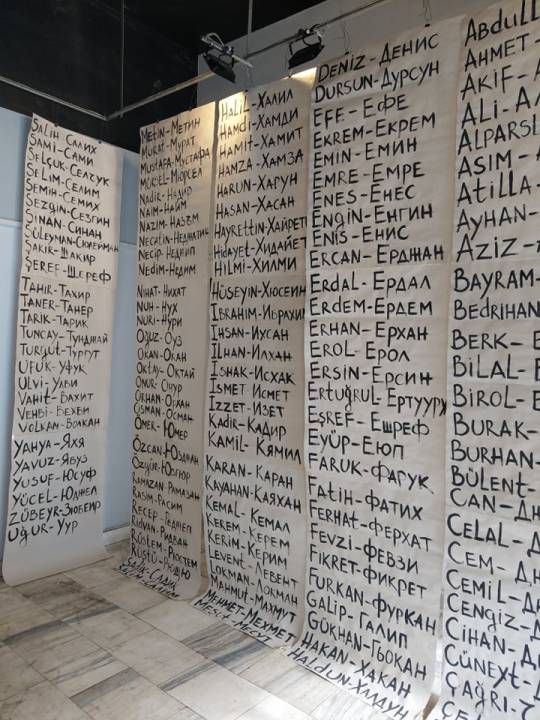 SALIH-САЛИХ
SAMI-САМИ
SELÇUK-СЕЛЧУК
SELIM-СЕЛИМ
SEMIH-СЕМИХ
SEZGIN-СЕЗГИН
SINAN-СИНАН
SÜLEYMAN-СЮЛЕЙМАН
ŞAKIR-ШАКИР
ŞEREF-ШЕРЕФ
TAHIR-ТАХИР
TANER-ТАНЕР
TARIK-ТАРИК
TUNCAY-ТУНДЖАЙ
TURGUT-ТУРГУТ
UFUK-УФУК
ULVI-УЛВИ
VAHIT-ВАХИТ
VEHBI-ВЕХБИ
VOLKAN-ВОЛКАН
YAHYA-ЯХЯ
YAVUZ-ЯВУЗ
YUSUF-ЮСУФ
YÜCEL-ЮДЖЕЛ
ZÜBEYR-ЗЮБЕИР
UĞUR-УУР
METIN-МЕТИН
MURAT-МУРАТ
MUSTAFA-МУСТАФА
MÜRSEL-МЮРСЕЛ
NADIR-НАДИР
NAIM-НАИМ
NAZIM-НАЗЪМ
NECATIN-НЕДЖАТИН
NECIP-НЕДЖИП
NEDIM-НЕДИМ
NIHAT-НИХАТ
NUH-НУХ
NURI-НУРИ
OĞUZ-ОУЗ
OKAN-ОКАН
OKTAY-ОКТАЙ
ONUR-ОНУР
ORHAN-ОРХАН
OSMAN-ОСМАН
ÖMER-ЮМЕР
ÖZCAN-ЮЗДЖАН
ÖZGÜR-ЮЗГЮР
RAMAZAN-РАМАЗАН
RASIM-РАСИМ
RECEP-РЕДЖЕП
RIDVAN-РИДВАН
RÜSTEM-РЮСТЕМ
RÜŞTÜ-РЮШТЮ
SADIK-САДЪК
HALIL-ХАЛИЛ
HAMDI-ХАМДИ
HAMIT-ХАМИТ
HAMZA-ХАМЗА
HARUN-ХАРУН
HASAN-ХАСАН
HAYRETTIN-ХАЙРЕТИ
HIDAYET-ХИДАЙЕТ
HILMI-ХИЛМИ
HÜSEYIN-ХЮСЕИН
IBRAHIM-ИБРАХИМ
IHSAN-ИХСАН
ILHAN-ИЛХАН
ISHAK-ИСХАК
ISMET-ИСМЕТ
IZZET-ИЗЕТ
KADIR-КАДИР
KAMIL-КЯМИЛ
KARAN-КАРАН
KAYAHAN-КАЯХАН
KEMAL-КЕМАЛ
KEREM-КЕРЕМ
KERIM-КЕРИМ
LEVENT-ЛЕВЕНТ
LOKMAN-ЛОКМАН
MAHMUT-МАХМУТ
MEHMET-МЕХМЕТ
MESUT-МЕСУТ
DENIZ-ДЕНИС
DURSUN-ДУРСУН
EFE-ЕФЕ
EKREM-ЕКРЕМ
EMIN-ЕМИН
EMRE-ЕМРЕ
ENES-ЕНЕС
ENGIN-ЕНГИН
ENIS-ЕНИС
ERCAN-ЕРДЖАН
ERDAL-ЕРДАЛ
ERDEM-ЕРДЕМ
ERHAN-ЕРХАН
EROL-ЕРОЛ
ERSIN-ЕРСИН
ERTUĞRUL-ЕРТУУРУ
EŞREF-ЕШРЕФ
EYÜP-ЕЮП
FARUK-ФАРУК
FATIH-ФАТИХ
FERHAT-ФЕРХАТ
FEVZI-ФЕВЗИ
FIKRET-ФИКРЕТ
FURKAN-ФУРКАН
GALIP-ГАЛИП
GÖKHAN-ГЬОКАН
HAKAN-ХАКАН
HALDUN-ХАЛДУН
ABDULL
AHMET-
AKIF-А
ALI-АЛ
ALPARSL
ASIM-А
ATILLA-
AYHAN-
AZIZ-
BAYRAM-
BEDRIHAN
BERK-Б
BILAL-Б
BIROL-Б
BURAK-
BURHAN-
BÜLENT-
CAN-ДЖ
CELAL-Д
CEM-ДЖ
CEMIL-Д
CENGIZ-
CIHAN-Д
CÜNEYT-
ÇAĞRI-Ч